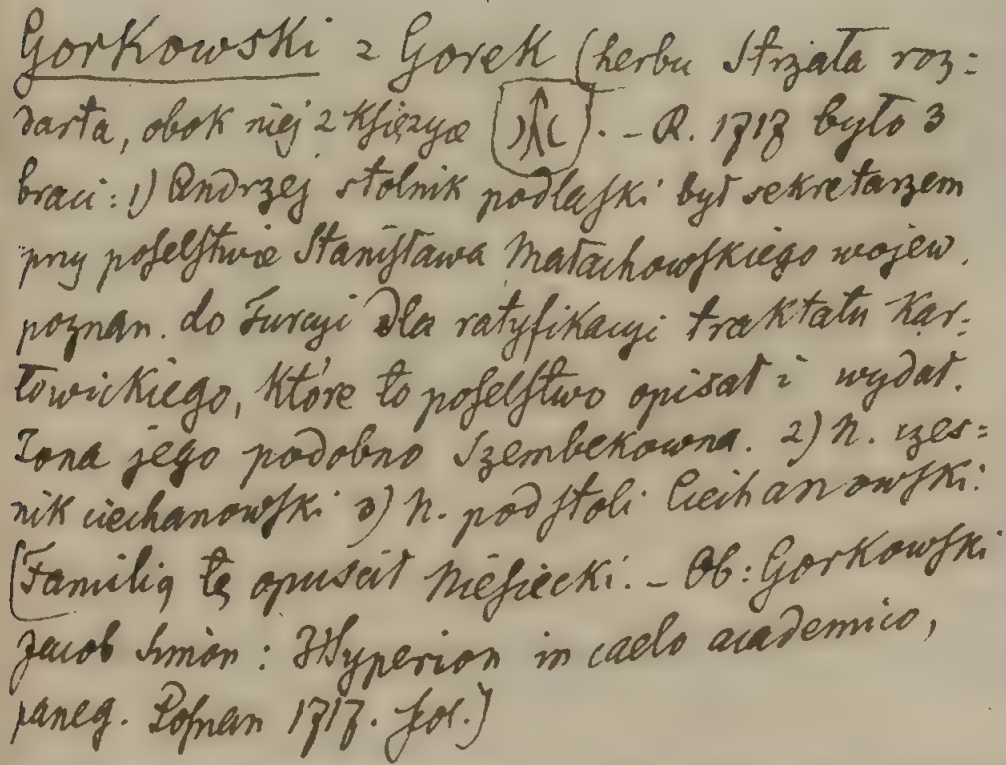 Gorkowski z Gorek (herbu Strzała roz=
darta, obok niej 2 Księżyce . – R. 1717 było 3
braci: 1) Andrzej stolnik podlaſki był sekretarzem
przy poſelſtwie Staniſława Małachowſkiego wojew.
poznan. do Turcyi dla ratyfikacyi traktatu Kar=
łowickiego, które to poſelſtwo opisał i wydał.
Żona jego podobno Szembekowna. 2) N. czes=
nik ciechanowſki 3) N. podſtoli Ciechanowſki.
(Familią tę opuscił Nieſiecki. – Ob: Gorkowſki
Jacob Simon: Hyperion in caelo academico,
paneg. Poſnan 1717. fol.)